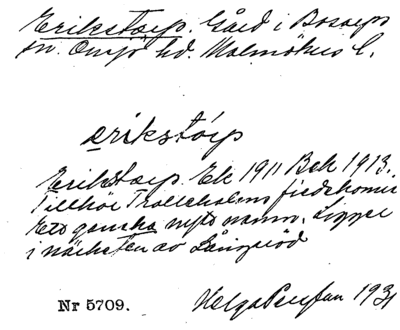 Erikstorp. Gård i Bosarps
sn. Onsjö hd. Malmöhus l.
erikstórp
Erikstorp. Ek 1911 Bek 1913.
Tillhör Trolleholms fideikomiss
Ett ganska nytt namn. Ligger
i närheten av
Nr 5709.
Helga 1931